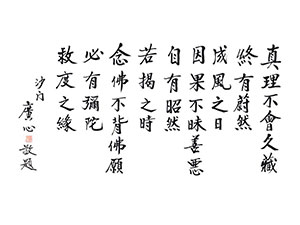 真理不會久藏
終有蔚然
成風之日
因果不昧善惡
自有昭然
若揭之時
念佛不背佛願
必有彌陀
救度之緣
沙門
廣心 敬題